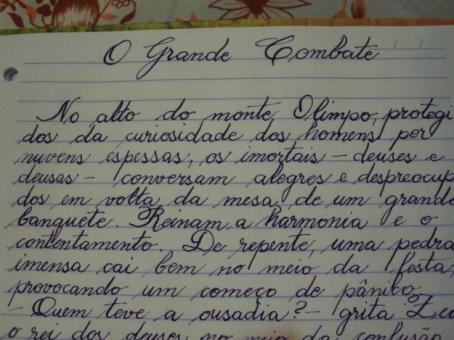 O Grande Combate
No alto do monte Olimpo, protegi
dos da curiosidade dos homens por
nuvens espessas, os imortais - deuses e
deusas - conversam alegres e despreocup
dos em volta da mesa de um grande
banquete. Reinam a harmonia e o
contentamento. De repente, uma pedra
imensa cai bem no meio da festa,
provocando um começo de pânico.
- Quem teve a ousadia? - grita Zeu
o rei dos deuses no meio da confusão